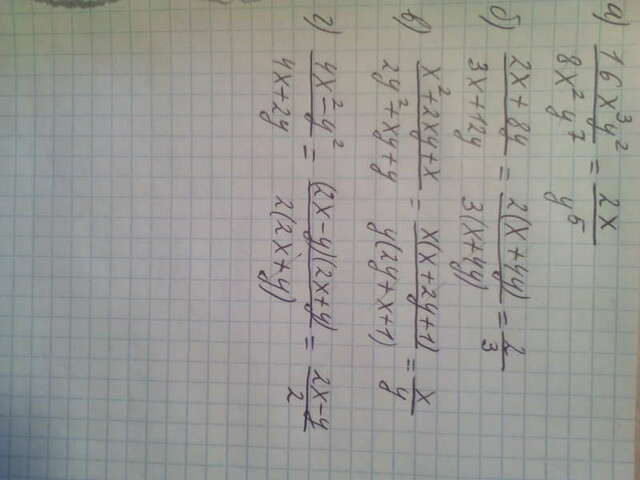 а) 16x³y² / 8x²y⁷ = 2x / y⁵
б) 2x+8y / 3x+12y = 2(x+4y) / 3(x+4y) = 2 / 3
в) x²+2xy+x / 2y²+xy+y = x(x+2y+1) / y(2y+x+1) = x / y
г) 4x²-y² / 4x+2y = (2x-y)(2x+y) / 2(2x+y) = 2x-y / 2